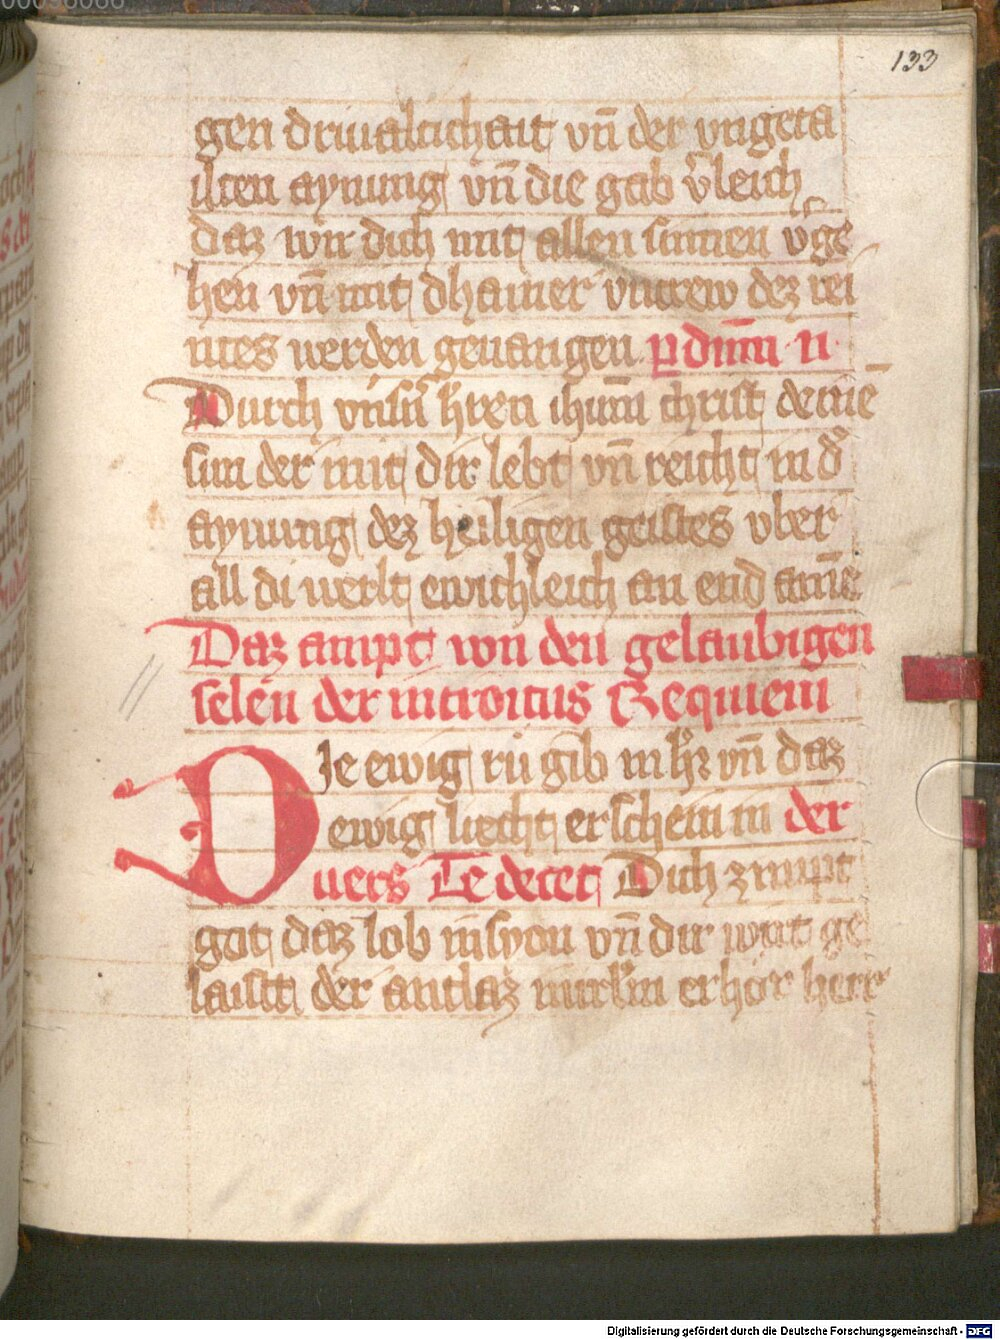 00096066
133
gen driualtichait vn̄ der vngeta
ilten aynung vn̄ die gab v̄leich
daz wir dich mit allen sinnen v̄ge
hen vn̄ mit dhainer vntrew dez vei
ntes werden geuangen ꝑ dn̄m n
Durch vnsn̄ hren ihum christ deinē
sun der mit dir lebt vn̄ reicht in d̄
aynung dez heiligen geistes vber
all di werlt ewichleich an end amē
Daz ampt von den gelaubigen
selen der introitus Requiem
DJe ewig ru gib in hr vn̄ daz
ewig liecht erschein in der
uers Te decet Dich zimpt
got daz lob in syon vn̄ dir wirt ge
laistt der antlaz in irl'm erhör herr
Digitalisierung gefördert durch die Deutsche Forschungsgemeinschaft - DFG